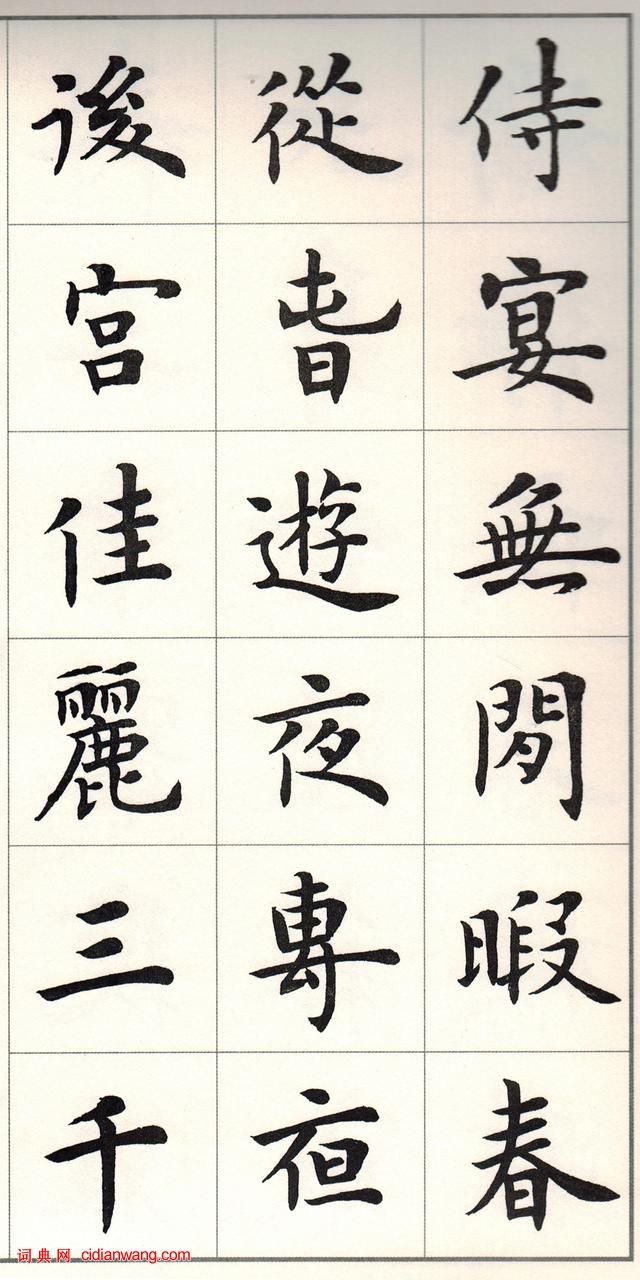 侍宴無閒暇春
從旾遊夜專亱
後宫佳麗三千
词典网 cidianwang.com